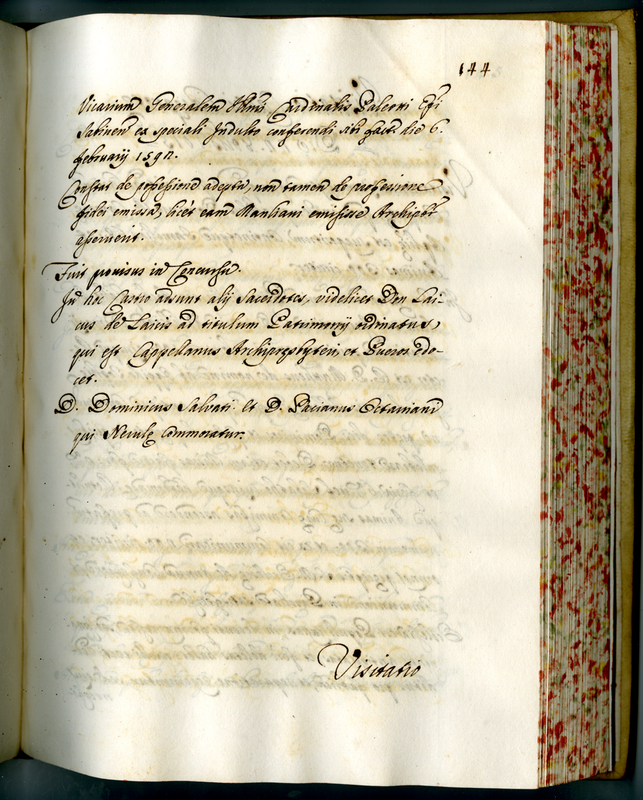 144
Vicarium Generalem Illmi Cardinalis Paleoti Epi
Sabinen ex speciali Indulto conferendi sibi fact. die 6.
februarij 1592.
Constat de possessione adepta, non tamen de professione
fidei emissa, licet eam Manliani emisisse Archipbr
asseruerit.
Fuit provisus in Concursu.
In hoc Castro adsunt alij Sacerdotes, videlicet Don Lai-
cus de Laicis ad titulum Patrimonij ordinatus,
qui est Cappellanus Archipresbyteri, et Pueros edo-
cet.
D. Dominicus Salvati et D. Pacianus Octaviani
qui Nerulę commoratur.
Visitatio